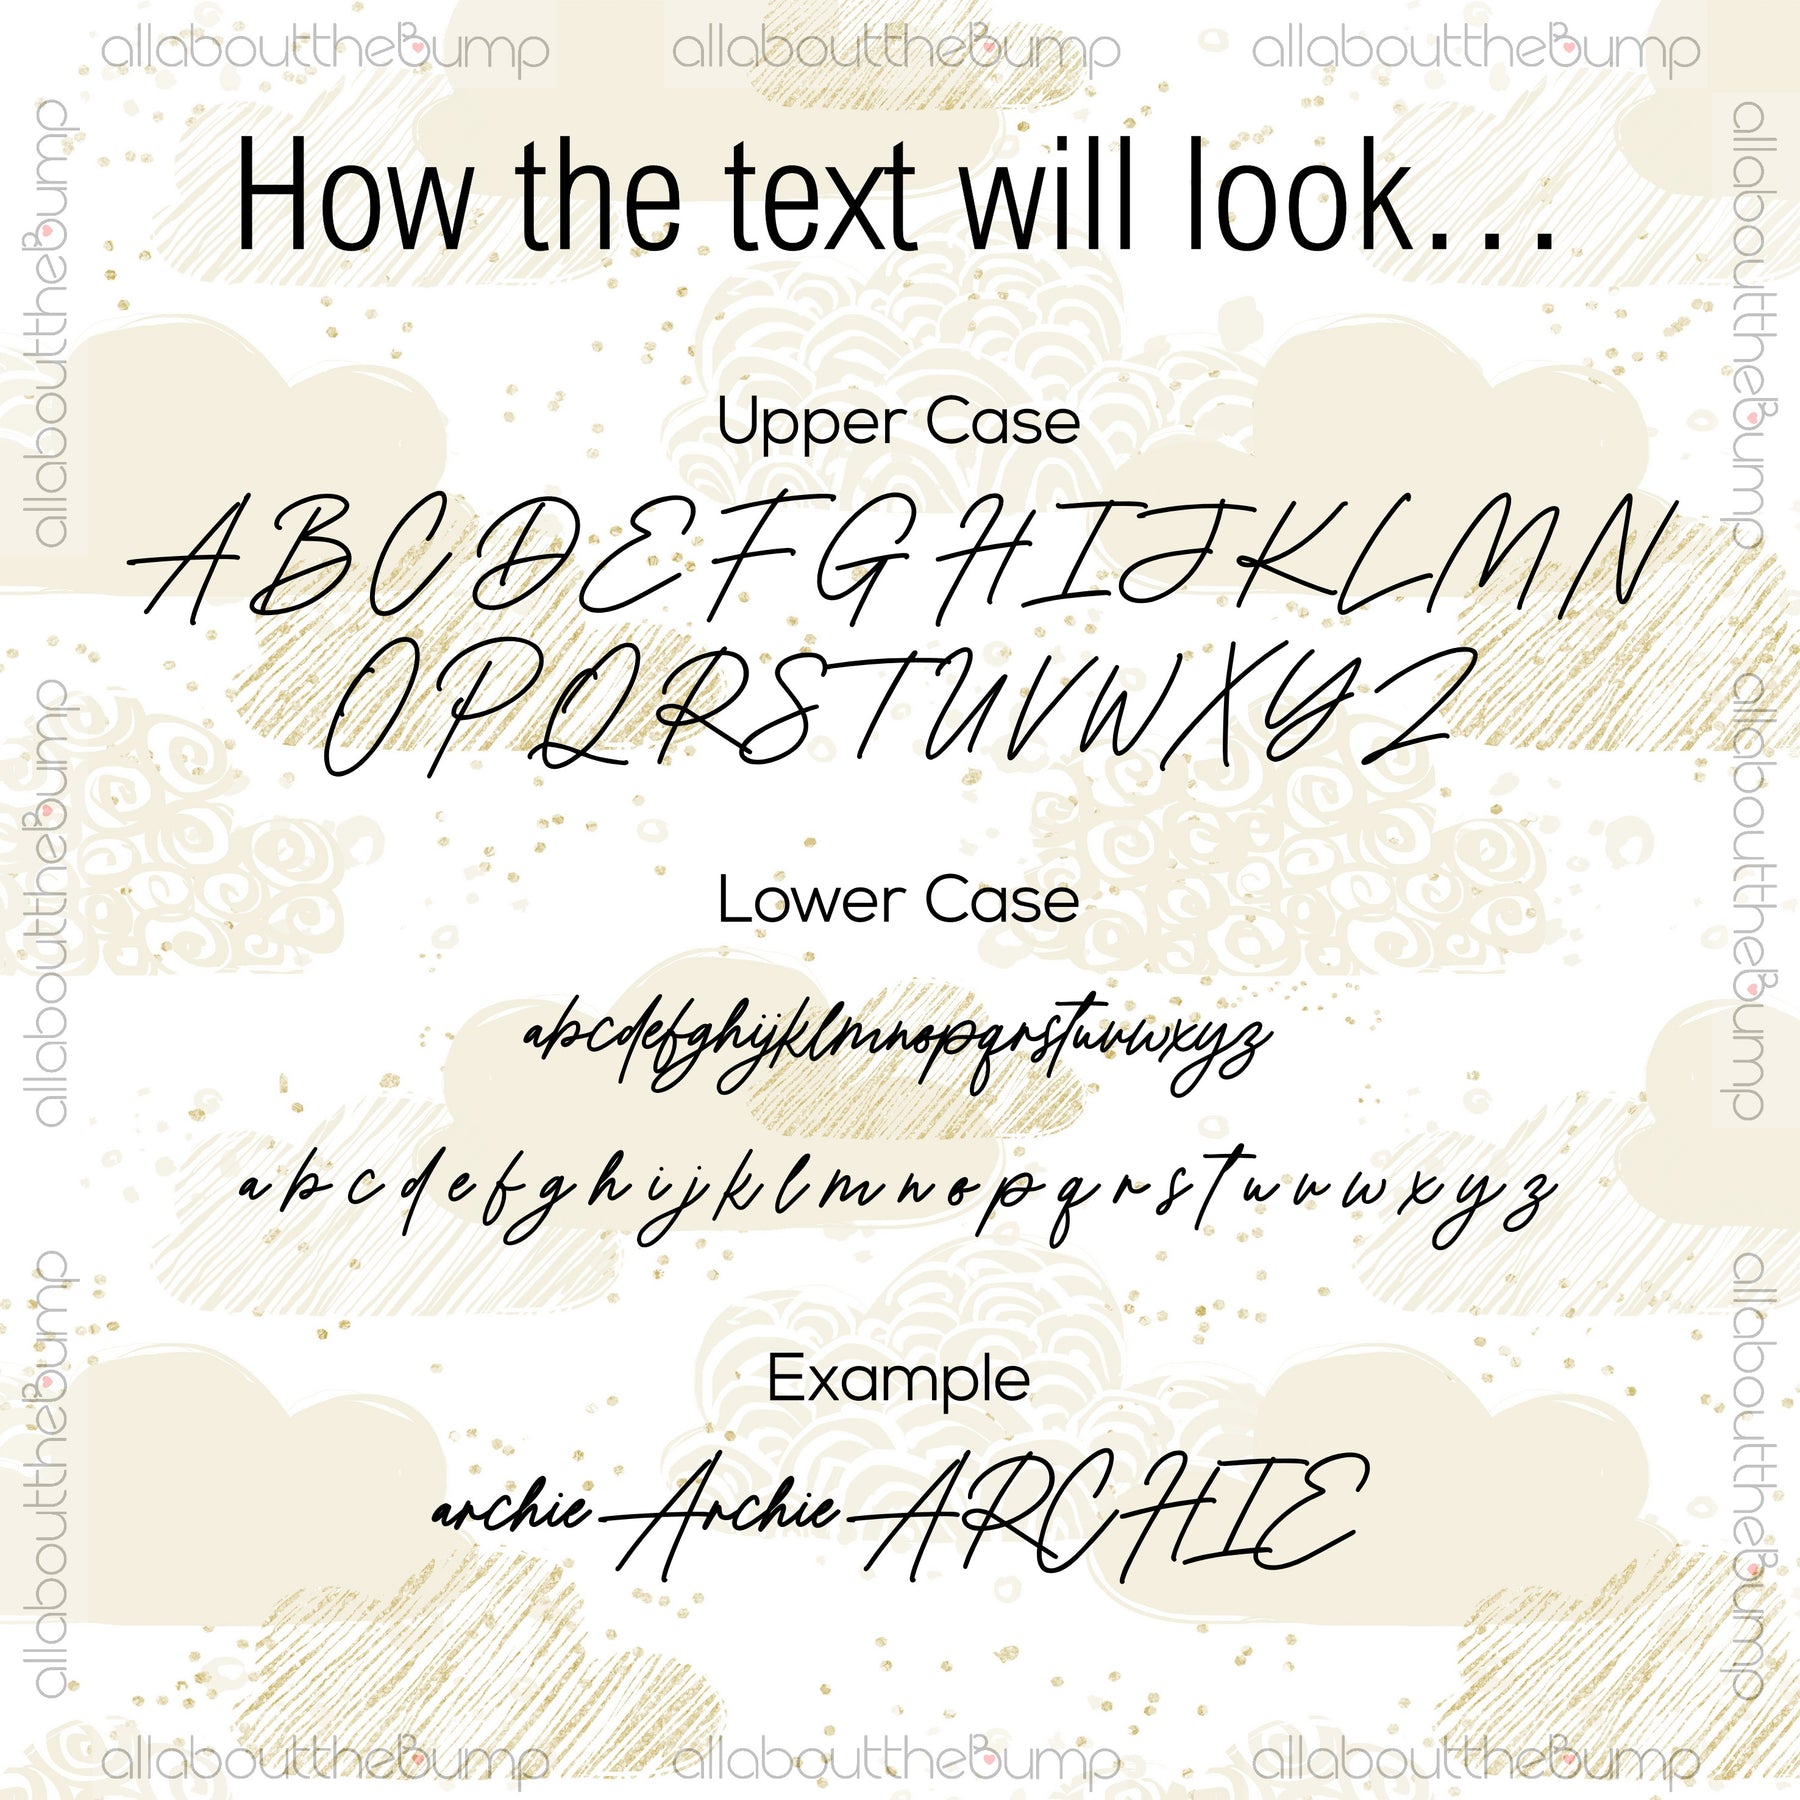 allabouttheBump allabouttheBump allabouttheBump
How the text will look...
Upper Case
A B C D E F G H I J K L M N
O P Q R S T U V W X Y Z
Lower Case
abcdefghijklmnopqrstuvwxyz
a b c d e f g h i j k l m n o p q r s t u v w x y z
Example
archie Archie ARCHIE
allabouttheBump
allabouttheBump
allabouttheBump
allabouttheBump
allabouttheBump
allabouttheBump
allabouttheBump allabouttheBump allabouttheBump